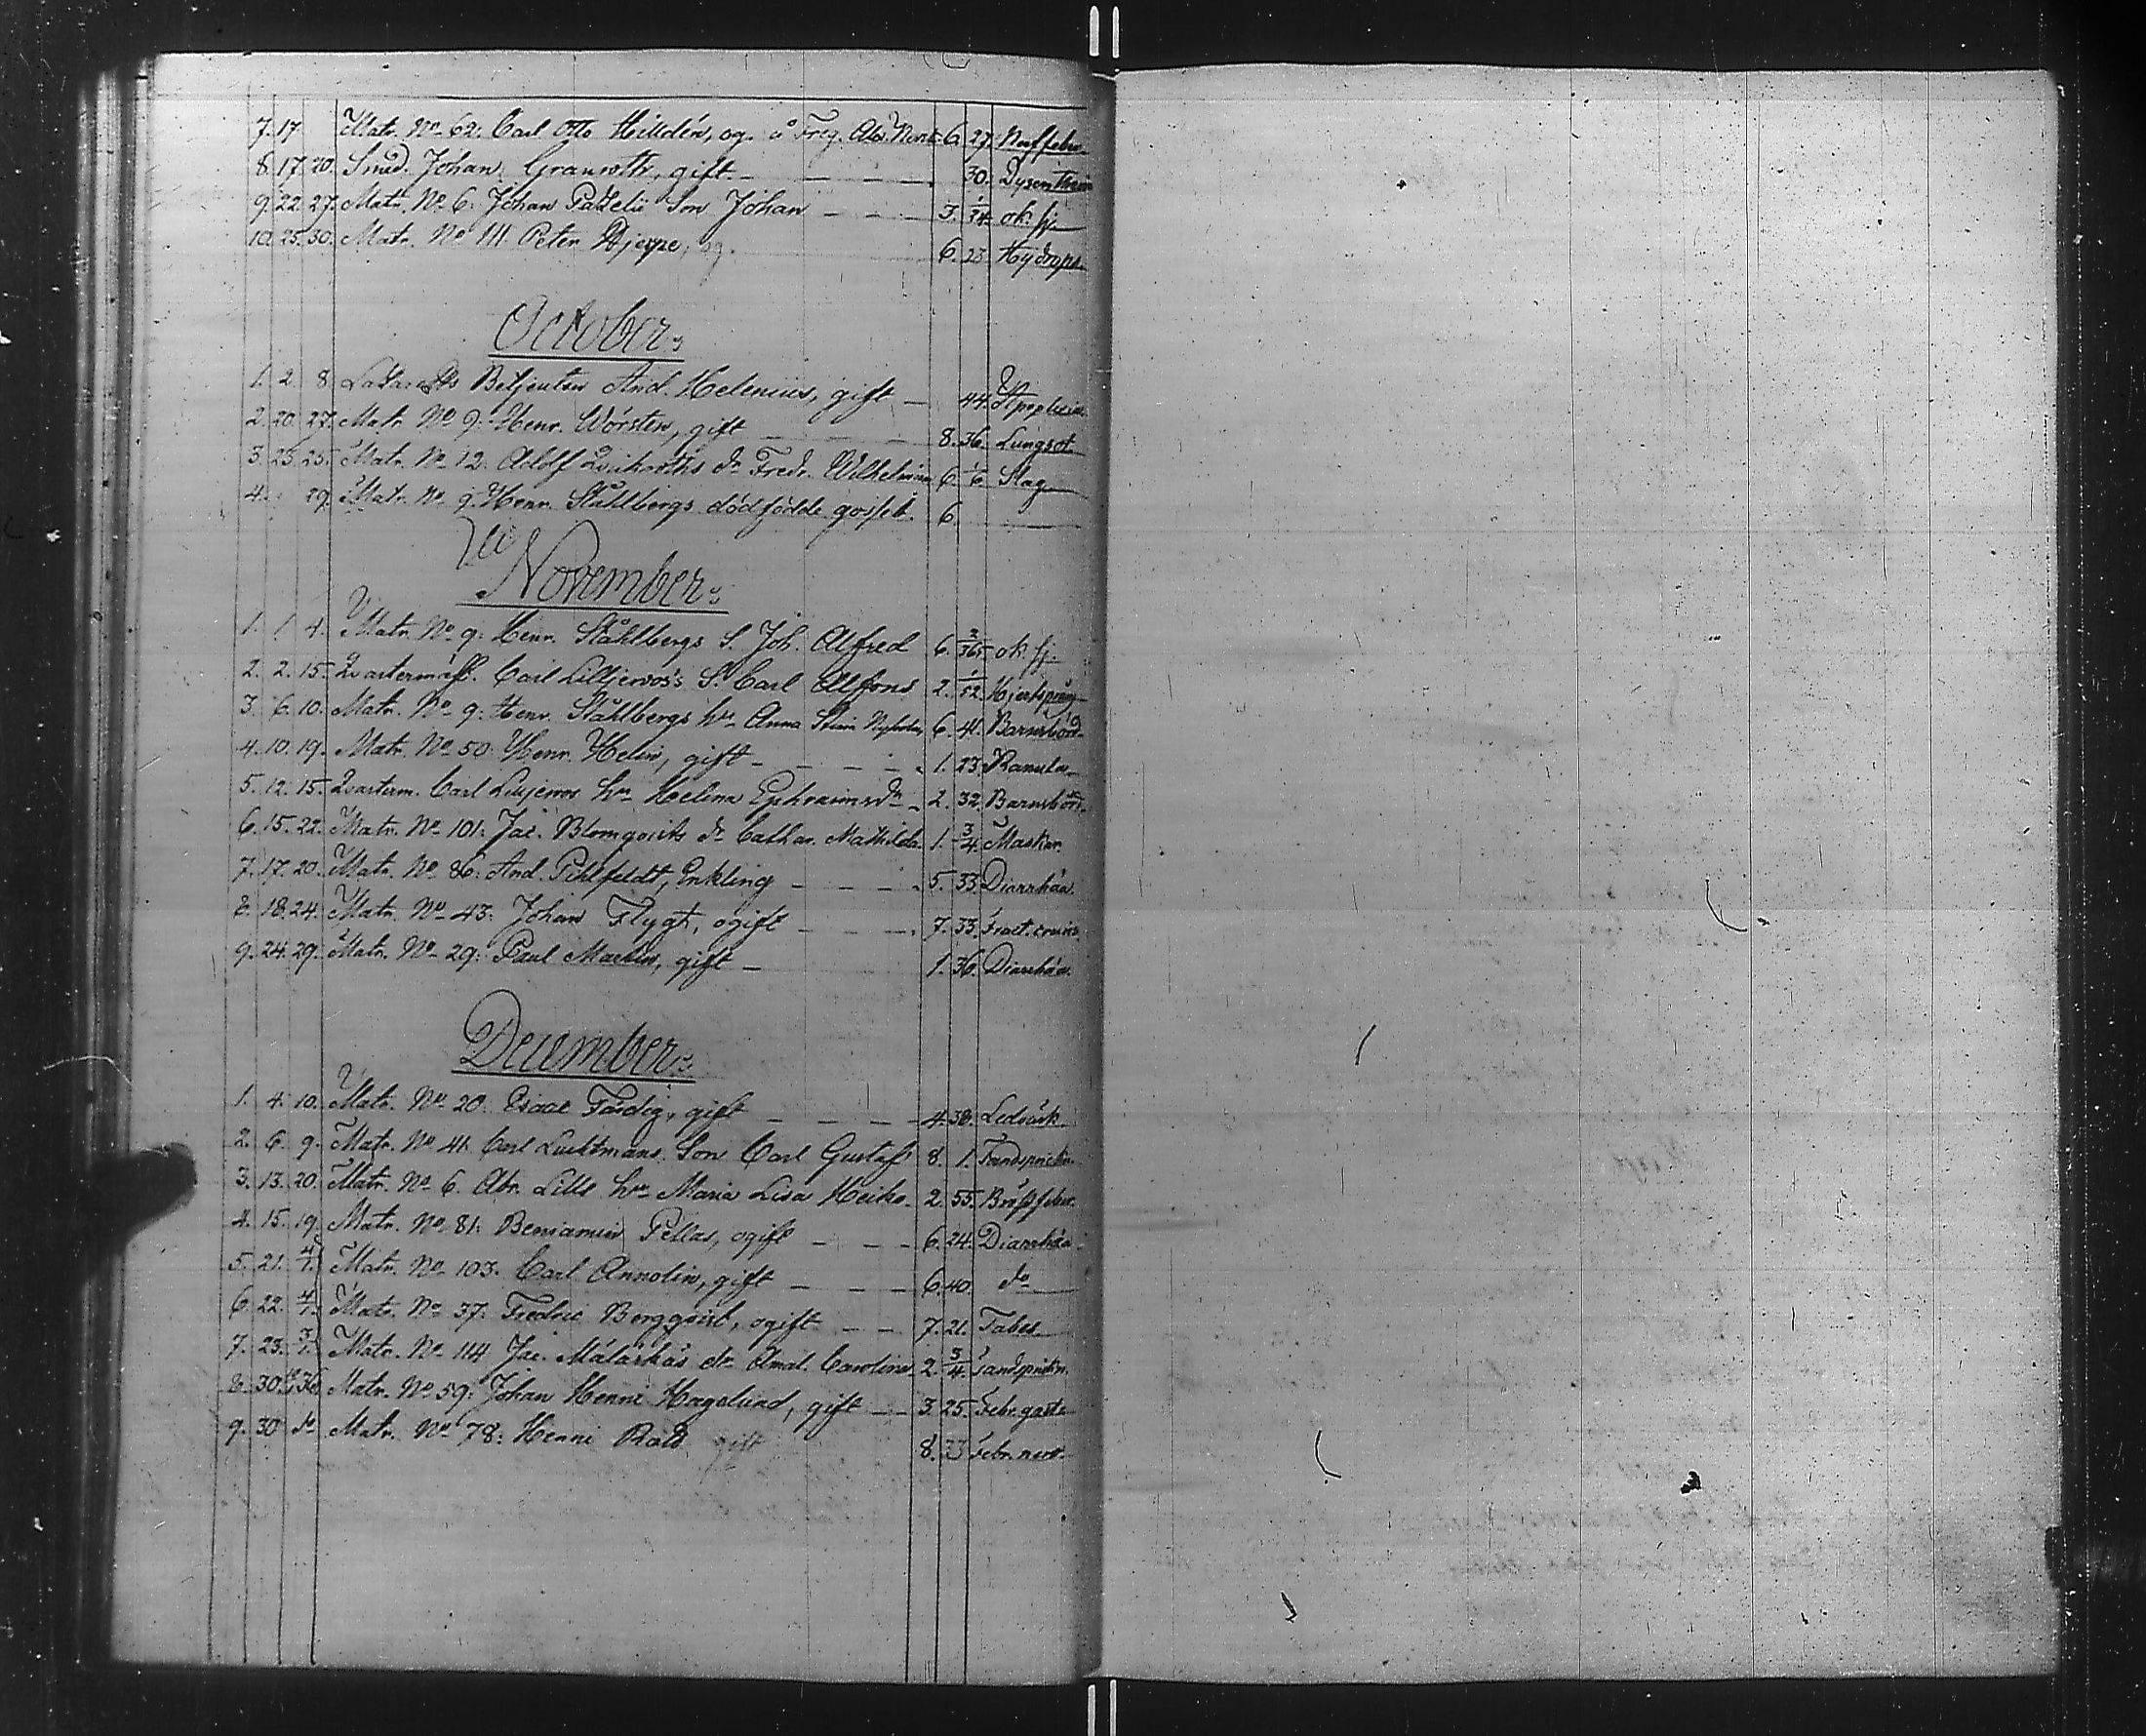 7. 17. Matr. No 62. Carl Otto Hilldén, og. å Freg. Alex. Newsk. 6. 27. Nerffeber
8. 17. 20. Smed. Johan Granroth, gift 30. Dysenteria
9. 22. 27. Matr. No 6. Johan Son Johan 3. 1/24 ok. sj.
10. 25. 30. Matr. No 111. Peter Hjerpe, og. 6. 23. Hydrops
October
1. 2. 8. Lazaretts Betjenten And. Helenius, gift 44. Apoplexia
2. 20. 27. Matr. No 9. Henr. Wörsten, gift 8. 36. Lungsot
3. 23. 25. Matr. No 12. Adolf dr Fredr. Wilhelmina 6. 1/6. Slag
4. 29. Matr. No 9. Henr. Ståhlbergs dödfödde gosseb. 6.
November
1. 1. 4. Matr. No 9: Henr. Ståhlbergs S. Joh. Alfred 6. 2/365. ok. sj.
2. 2. 15. Qvartermäst. Carl Liljeroos's S. Carl Alfons 2. 1/52. Hjertsprång
3. 6. 10. Matr. No 9: Henr. Ståhlbergs hu Anna Stina 6. 41. Barnsbörd
4. 10. 19. Matr. No 50: Henr. Helin, gift 1. 23. Ranula
5. 12. 15. Qvarterm. Carl Liljeroos hu Helena Ephraimsdr 2. 32. Barnsbörd
6. 15. 22. Matr. No 101: Jac. Blomqvists dr Cathar. Mathilda 1. 3/4. Maskar
7. 17. 20. Matr. No 86: And. Pihlfeldt, Enkling 5. 33. Diarrhéa
8. 18. 24. Matr. No 43: Johan Flygt, ogift 7. 33. Fract. cruris
9. 24. 29. Matr. No 29: Paul Martin, gift 1. 36. Diarrhéa
December
1. 4. 10. Matr. No 20: Isaac Färdig, gift 4. 38. Ledvärk
2. 6. 9. Matr. No 41. Carl Lucktmans Son Carl Gustaf 8. 1. Tandsprickn.
3. 13. 20. Matr. No 6. Abr. Lills hu Maria Lisa Heiko 2. 55. Bröstfeber
4. 15. 19. Matr. No 81: Benjamin Pellas, ogift 6. 24. Diarrhéa
5. 21. 4/1. Matr. No 103. Carl Annolin, gift 6. 40. do
6. 22. 4/1. Matr. No 37: Fredric Bergqvist, ogift 7. 21. Tabes
7. 23. 3/1. Matr. No 114 Jac. dr Amal. Carolina 2. 3/4. Tandsprickn.
8. 30. Matr. No 59: Johan Henric Hagelund, gift 3. 25. Febr. gastr.
9. 30. do Matr. No 78: Henric Rald gift 8. 33. Febr. nerv.